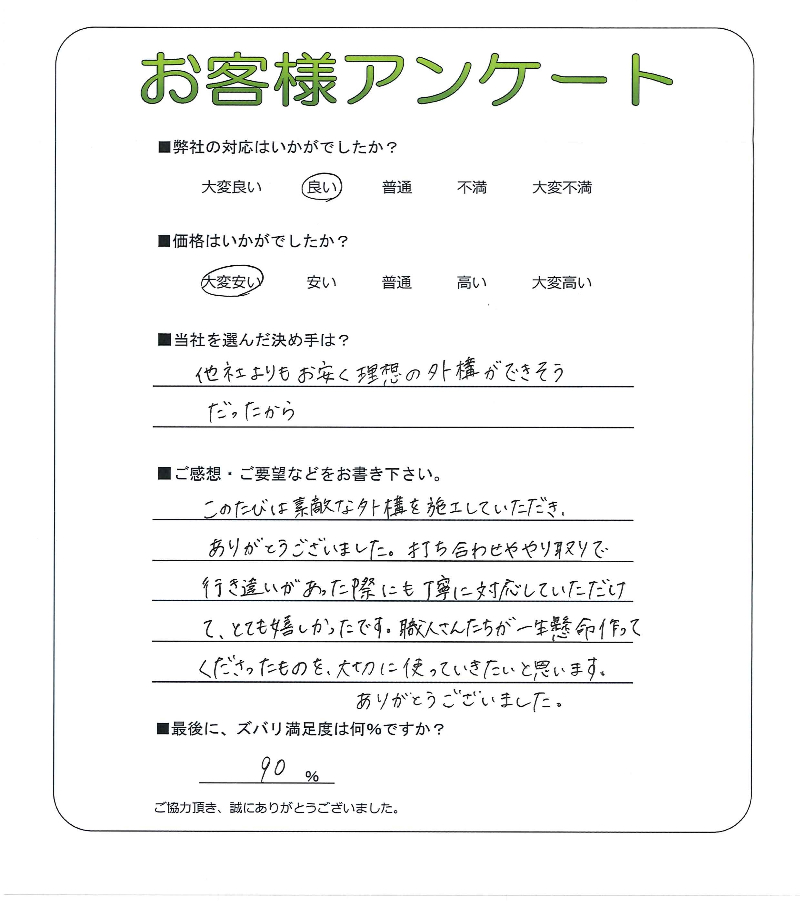 お客様アンケート
■弊社の対応はいかがでしたか？
大変良い　良い　普通　不満　大変不満
■価格はいかがでしたか？
大変安い　安い　普通　高い　大変高い
■当社を選んだ決め手は？
他社よりもお安く理想の外構ができそう
だったから
■ご感想・ご要望などをお書き下さい。
このたびは素敵な外構を施工していただき、
ありがとうございました。打ち合わせややり取りで
行き違いがあった際にも丁寧に対応していただけ
て、とても嬉しかったです。職人さんたちが一生懸命作って
くださったものを、大切に使っていきたいと思います。
ありがとうございました。
■最後に、ズバリ満足度は何%ですか？
90 %
ご協力頂き、誠にありがとうございました。